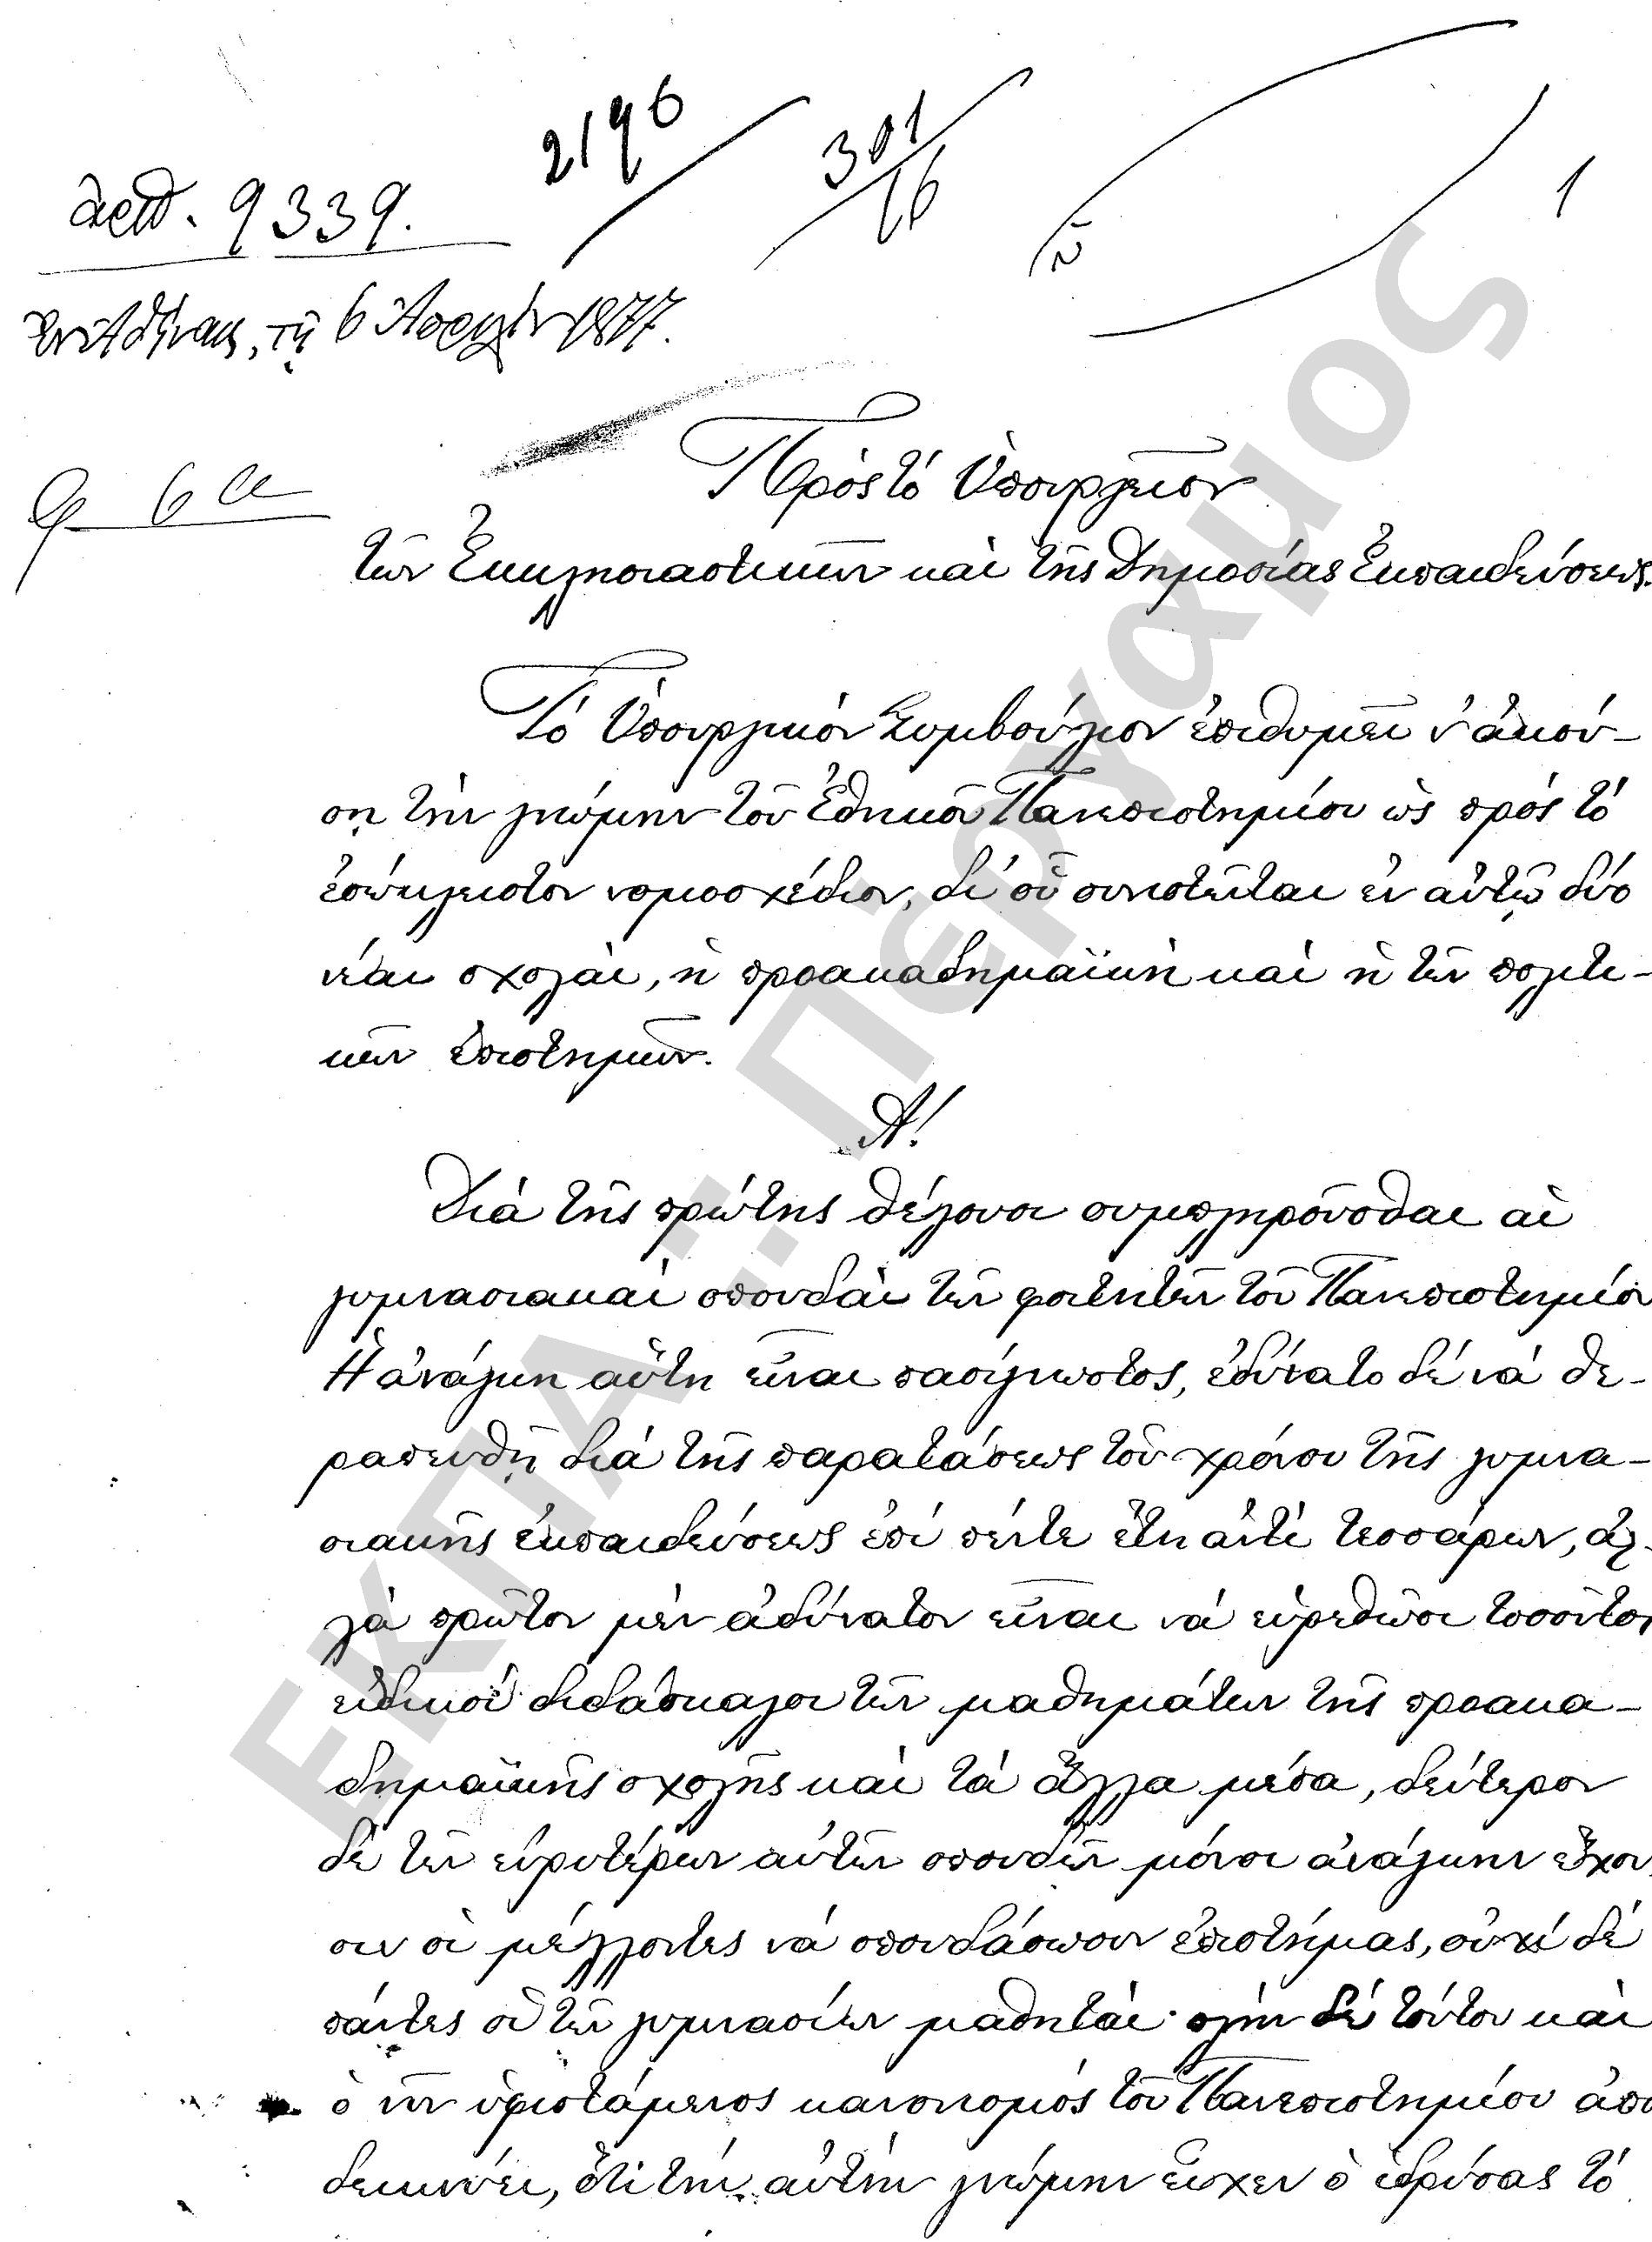 2196
301
16
1
ἀριθ. 9339.
Ἐν Ἀθήναις, τῇ 6 1877.
φ 6 α
Πρὸς τὸ Ὑπουργεῖον
τῶν Ἐκκλησιαστικῶν καὶ τῆς Δημοσίας Ἐκπαιδεύσεως.
Τὸ Ὑπουργικὸν Συμβούλιον ἐπιθυμεῖ ν' ἀκού-
σῃ τὴν γνώμην τοῦ Ἐθνικοῦ Πανεπιστημίου ὡς πρὸς τὸ
ἐσώκλειστον νομοσχέδιον, δι' οὗ συνιστῶνται ἐν αὐτῷ δύο
νέαι σχολαί, ἡ προακαδημαϊκὴ καὶ ἡ τῶν πολιτι-
κῶν ἐπιστημῶν.
Α!
Διὰ τῆς πρώτης θέλουσι συμπληροῦσθαι αἱ
γυμνασιακαὶ σπουδαὶ τῶν φοιτητῶν τοῦ Πανεπιστημίου
Ἡ ἀνάγκη αὕτη εἶναι πασίγνωστος, ἐδύνατο δὲ νὰ θε-
ραπευθῇ διὰ τῆς παρατάσεως τοῦ χρόνου τῆς γυμνα-
σιακῆς ἐκπαιδεύσεως ἐπὶ πέντε ἔτη ἀντὶ τεσσάρων, ἀλ-
λὰ πρῶτον μὲν ἀδύνατον εἶναι νὰ εὑρεθῶσι τοσοῦτοι
εἰδικοὶ διδάσκαλοι τῶν μαθημάτων τῆς προακα-
δημαϊκῆς σχολῆς καὶ τὰ ἄλλα μέσα, δεύτερον
δὲ τῶν εὐρυτέρων αὐτῶν σπουδῶν μόνοι ἀνάγκην ἔχου
σιν οἱ μέλλοντες νὰ σπουδάσωσιν ἐπιστήμας, οὐχὶ δὲ
πάντες οἱ τῶν γυμνασίων μαθηταί· πλὴν δὲ τούτου καὶ
ὁ νῦν ὑφιστάμενος κανονισμὸς τοῦ Πανεπιστημίου ἀπο
δεικνύει, ὅτι τὴν αὐτὴν γνώμην εἶχεν ὁ ἱδρύσας τὸ
ΕΚΠΑ... Πέργαμος